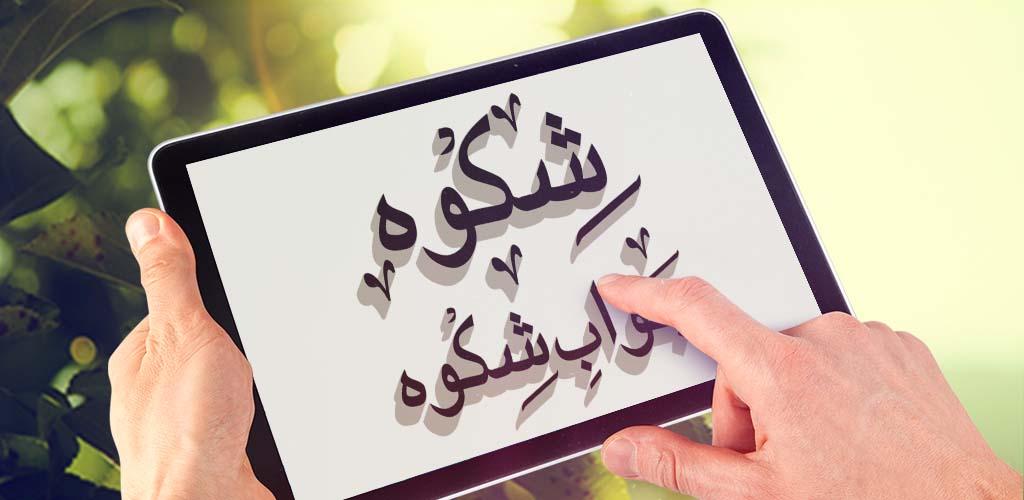 شِکوُہ
جوابِ شِکوُہ